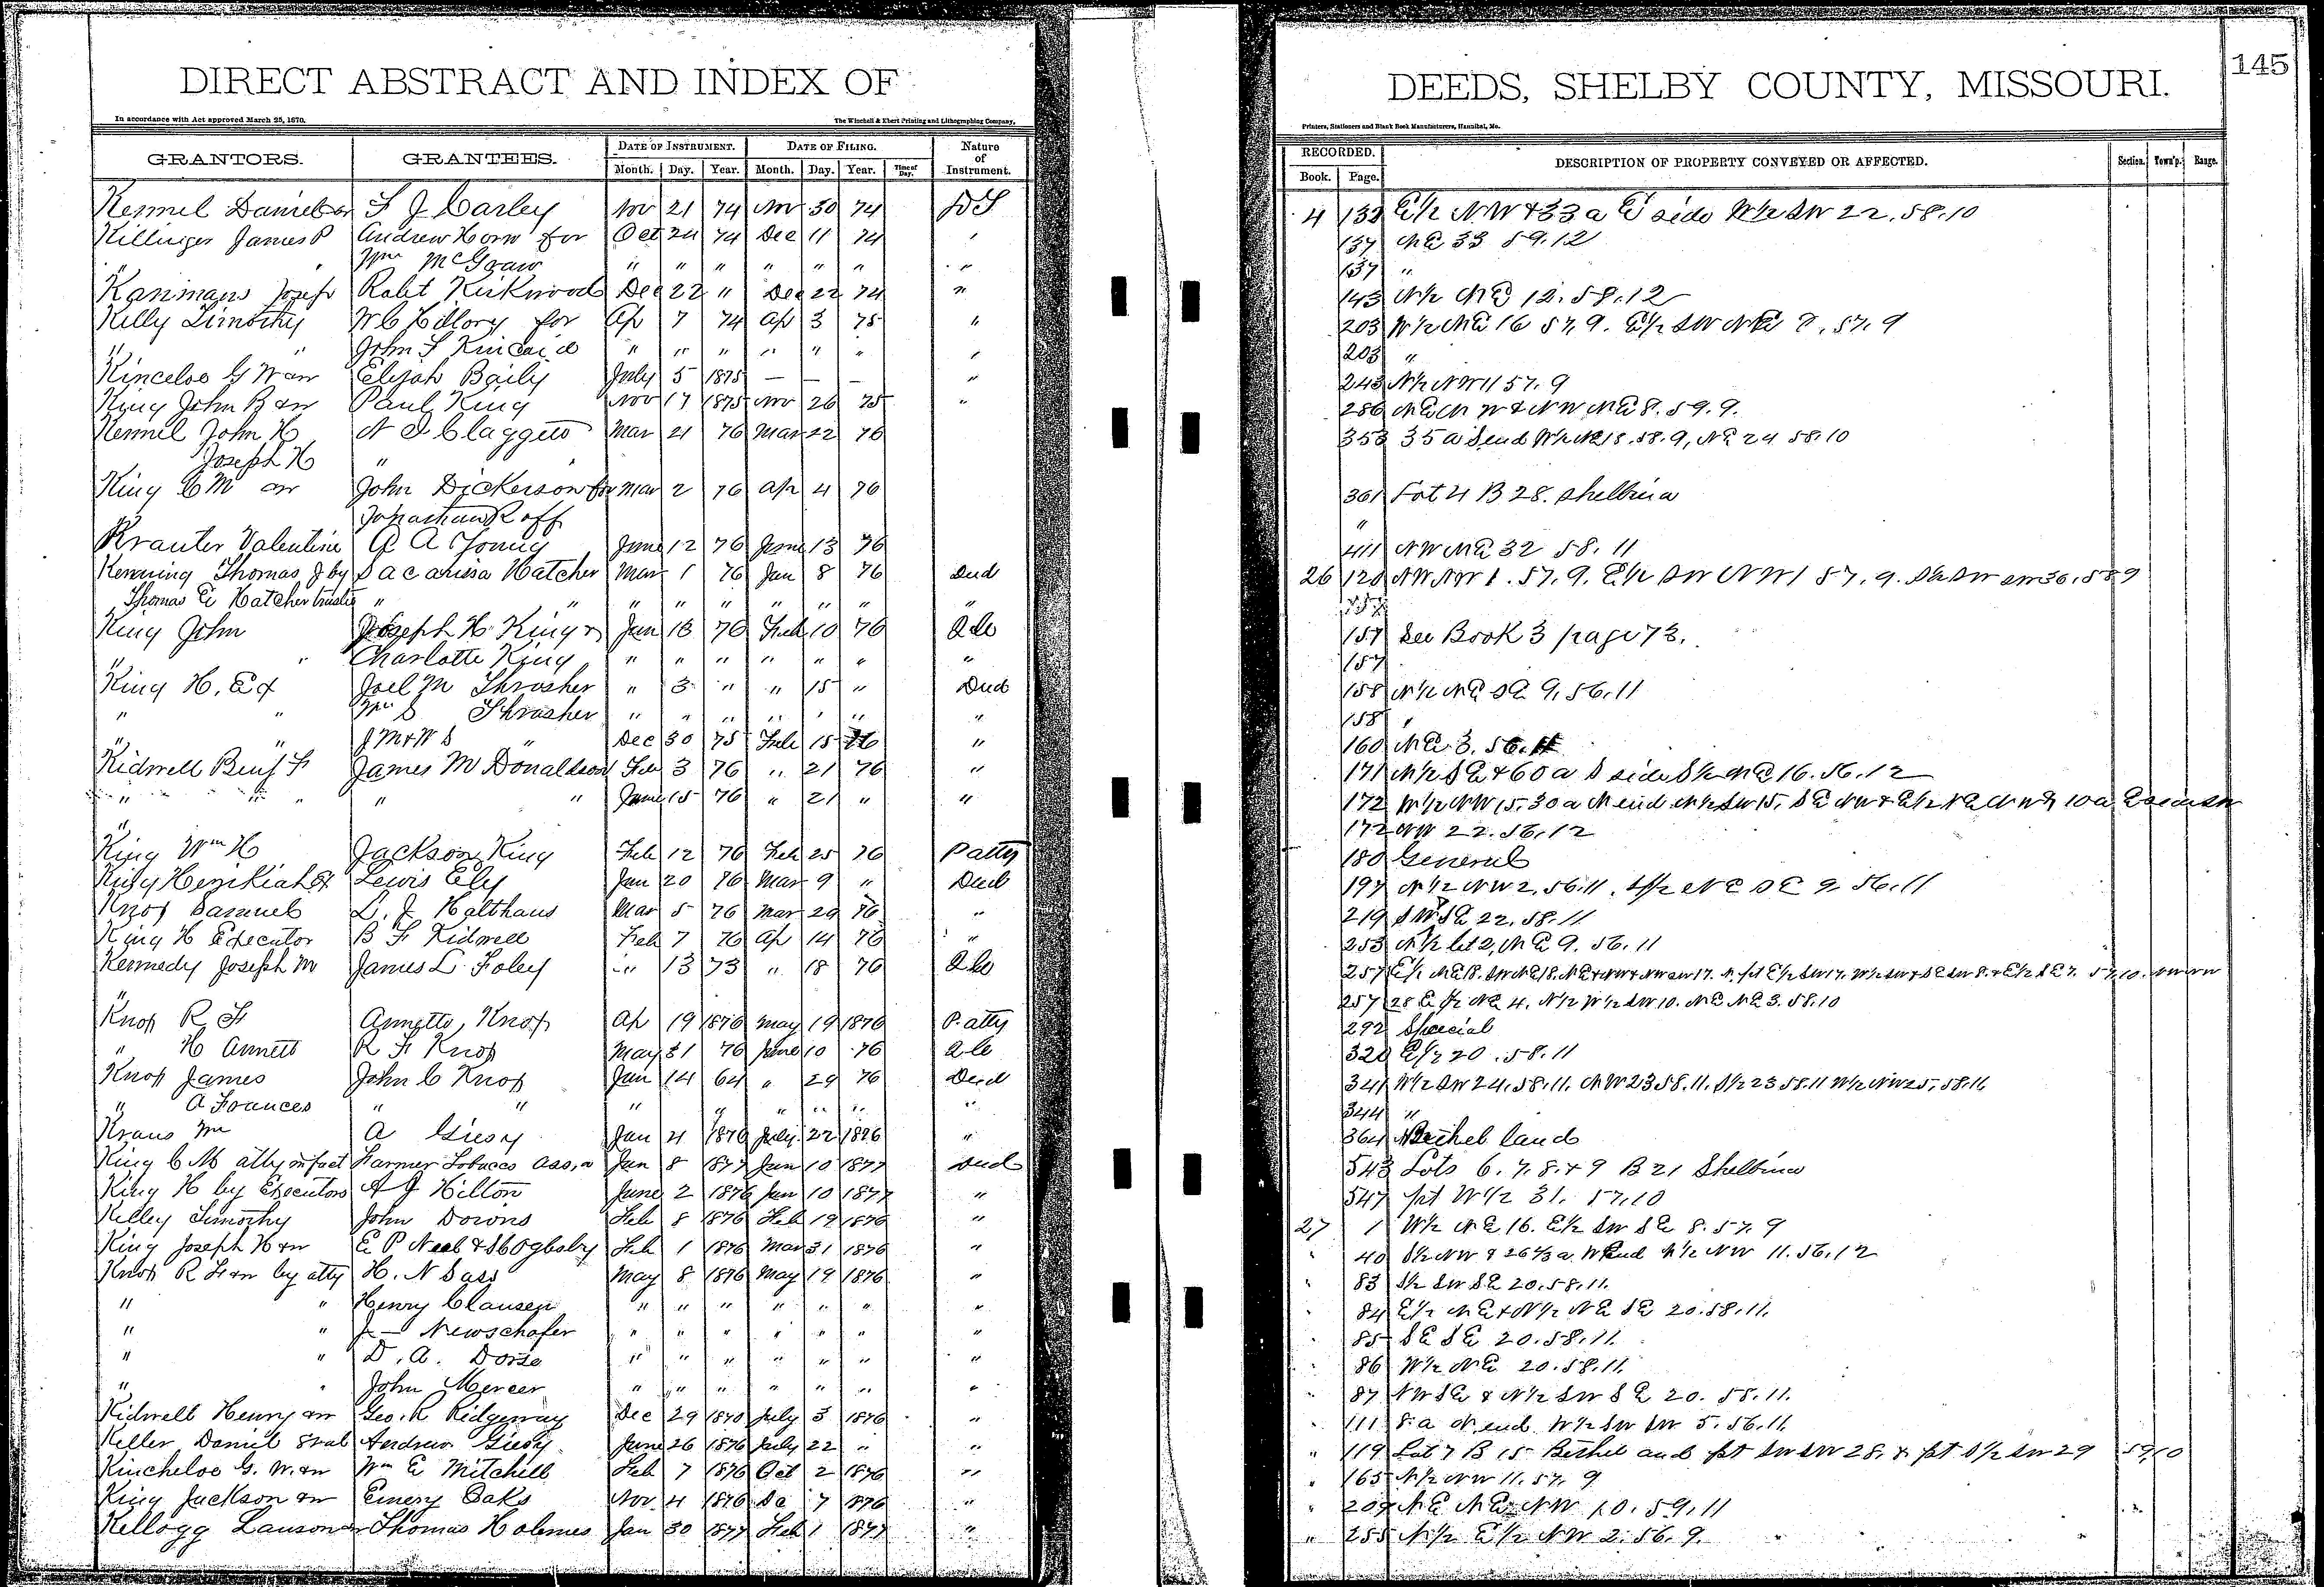 145
DIRECT ABSTRACT AND INDEX OF DEEDS, SHELBY COUNTY, MISSOURI.
In accordance with Act approved March 25, 1870. The Winchell & Ebert Printing and Lithographing Company, Printers, Stationers and Blank Book Manufacturers, Hannibal, Mo.
GRANTORS. GRANTEES. DATE OF INSTRUMENT. DATE OF FILING. Nature of Instrument. RECORDED. DESCRIPTION OF PROPERTY CONVEYED OR AFFECTED. Section. Town'p. Range.
Month. Day. Year. Month. Day. Year. Time of Day. Book. Page.
Kennel Daniel F J Carley Nov 21 74 Nov 30 74 DS 4 133 E½ NW & 33 a E side W½ SW 22.58.10
Killinger James P Andrew Horn for Oct 24 74 Dec 11 74 " 137 NE 33 59.12
" " Wm McGraw " " " " " " " 137 "
Kanmann Joseph Robt Kirkwood Dec 22 " Dec 22 74 " 143 N½ NE 12.58.12
Kelly Timothy for Ap 7 74 Ap 3 75 " 203 W½ NE 16 57.9. E½ SW 8.57.9
" " John S Kincaid " " " " " " " 203 "
Kinceloe G W Elijah Baily July 5 1875 — — — " 243 N½ NW 11 57.9
King John B & w Paul King Nov 17 1875 Nov 26 75 " 286 NE NW & NW NE 8.59.9.
Kennel John H Claggett Mar 21 76 Mar 22 76 353 35 a S end 18.58.9, NE 24 58.10
Joseph H "
King C M John Dickerson for Mar 2 76 Ap 4 76 361 Lot 4 B 28. Shelbina
Jonathan Roff "
Krauter Valentine A A Young June 12 76 June 13 76 411 NW NE 32 58.11
Thomas J by Hatcher Mar 1 76 Jan 8 76 Deed 26 120 NW NW 1.57.9. E½ SW NW 1 57.9. SW 36.58 9
Thomas E Hatcher trustee " " " " " " " " "
King John Joseph H King & Jan 18 76 Feb 10 76 157 See Book 3 page 73.
" " Charlotte King " " " " " " " 157
King H. Ex Joel M Thrasher " 3 " " 15 " Deed 158 N½ NE SE 9.56.11
" " Wm S Thrasher " " " " " " " 158 "
" " J M & W S " Dec 30 75 Feb 15 76 " 160 NE 3.56.11
Kidwell Benj F James M Donaldson Feb 3 76 " 21 76 " 171 N½ SE & 60 a S side S½ NE 16.56.12
" " " " June 15 76 " 21 " " 172 W½ NW 15.30 a N end N½ SW 15.
" 172 NW 22.56.12
King Wm H Jackson King Feb 12 76 Feb 25 76 P atty 180 General
King Hezekiah Ex Lewis Ely Jan 20 76 Mar 9 " Deed 197 N½ NW 2.56.11. S½ NE SE 9 56.11
Knox Samuel L. J Halthaus Mar 5 76 Mar 29 76 " 219 SW SE 22.58.11
King H Executor B F Kidwell Feb 7 76 Ap 14 76 " 253 N½ lot 2, NE 9.56.11
Kennedy Joseph M James L Foley " 13 73 " 18 76 257
" 257 28 E½ NE 4. N½ W½ SW 10. NE NE 3.58.10
Knox R F Annette Knox Ap 19 1876 May 19 1876 P. atty 292 Special
" H Annett R F Knox May 31 76 June 10 76 320 E½ 20.58.11
Knox James John C Knox Jan 14 64 " 29 76 Deed 341 W½ SW 24.58.11. NW 23 58.11. S½ 23 58.11 W½ NW 25.58.11
" A Frances " " " " " " " " " 344 "
Kraus Wm A Giesy Jan 4 1876 July 22 1876 " 364 Bethel land
King C M atty in fact Farmer Tobacco Ass,n Jan 8 1877 Jan 10 1877 Deed 543 Lots 6.7.8.& 9 B 21 Shelbina
King H by Executors A J Hilton June 2 1876 Jan 10 1877 " 547 pt W½ 31. 57.10
Kelley Timothy John Downs Feb 8 1876 Feb 19 1876 " 27 1 W½ NE 16. E½ SW SE 8.57.9
King Joseph H & w Feb 1 1876 Mar 31 1876 " " 40 S½ NW & 26⅔ a W end N½ NW 11.56.12
Knox R F & w by atty H. N Sass May 8 1876 May 19 1876 " " 83 S½ SW SE 20.58.11.
" " Henry Clausen " " " " " " " " 84 E½ NE & N½ NE SE 20.58.11.
" " J — Newschafer " " " " " " " " 85 SE SE 20.58.11.
" " D. A. " " " " " " " " 86 W½ NE 20.58.11.
" " John Mercer " " " " " " " " 87 NW SE & N½ SW SE 20. 58.11.
Kidwell Henry & w Geo. R Ridgeway Dec 29 1870 July 3 1876 " " 111 8 a N end W½ SW SW 5.56.11.
Keller Daniel Andrew Giesy June 26 1876 July 22 " " " 119 Lot 7 B 15 Bethel and pt SW SW 28. & pt S½ SW 29 59 10
Kincheloe G. W. & w Wm E Mitchell Feb 7 1876 Oct 2 1876 " " 165 N½ NW 11.57.9
King Jackson & w Emery Oaks Nov. 4 1876 De 7 1876 " " 209 NE NE NW 10.59.11
Kellogg Lauson Thomas Holmes Jan 30 1877 Feb 1 1877 " " 255 N½ E½ NW 2.56.9.